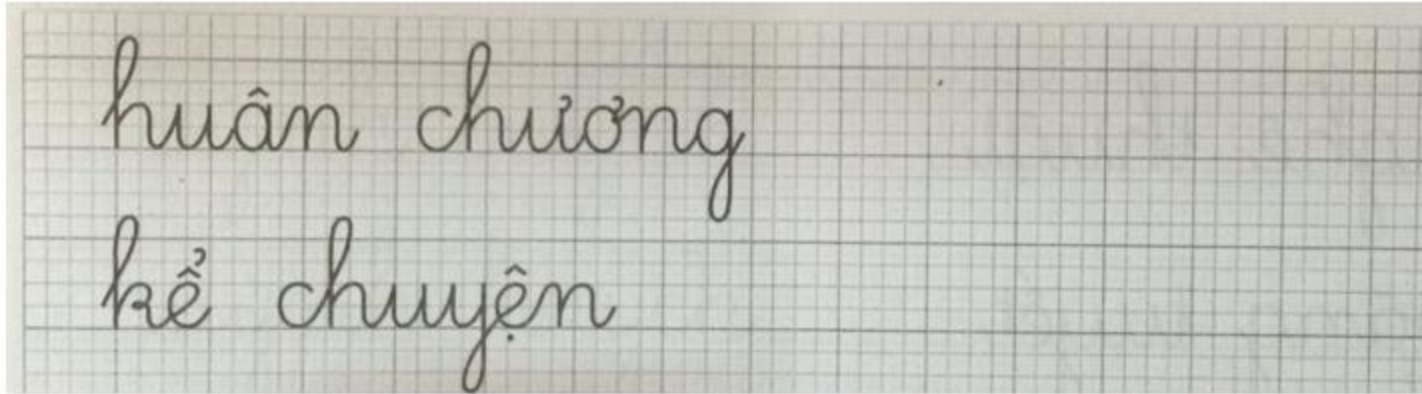 huân chương
kể chuyện